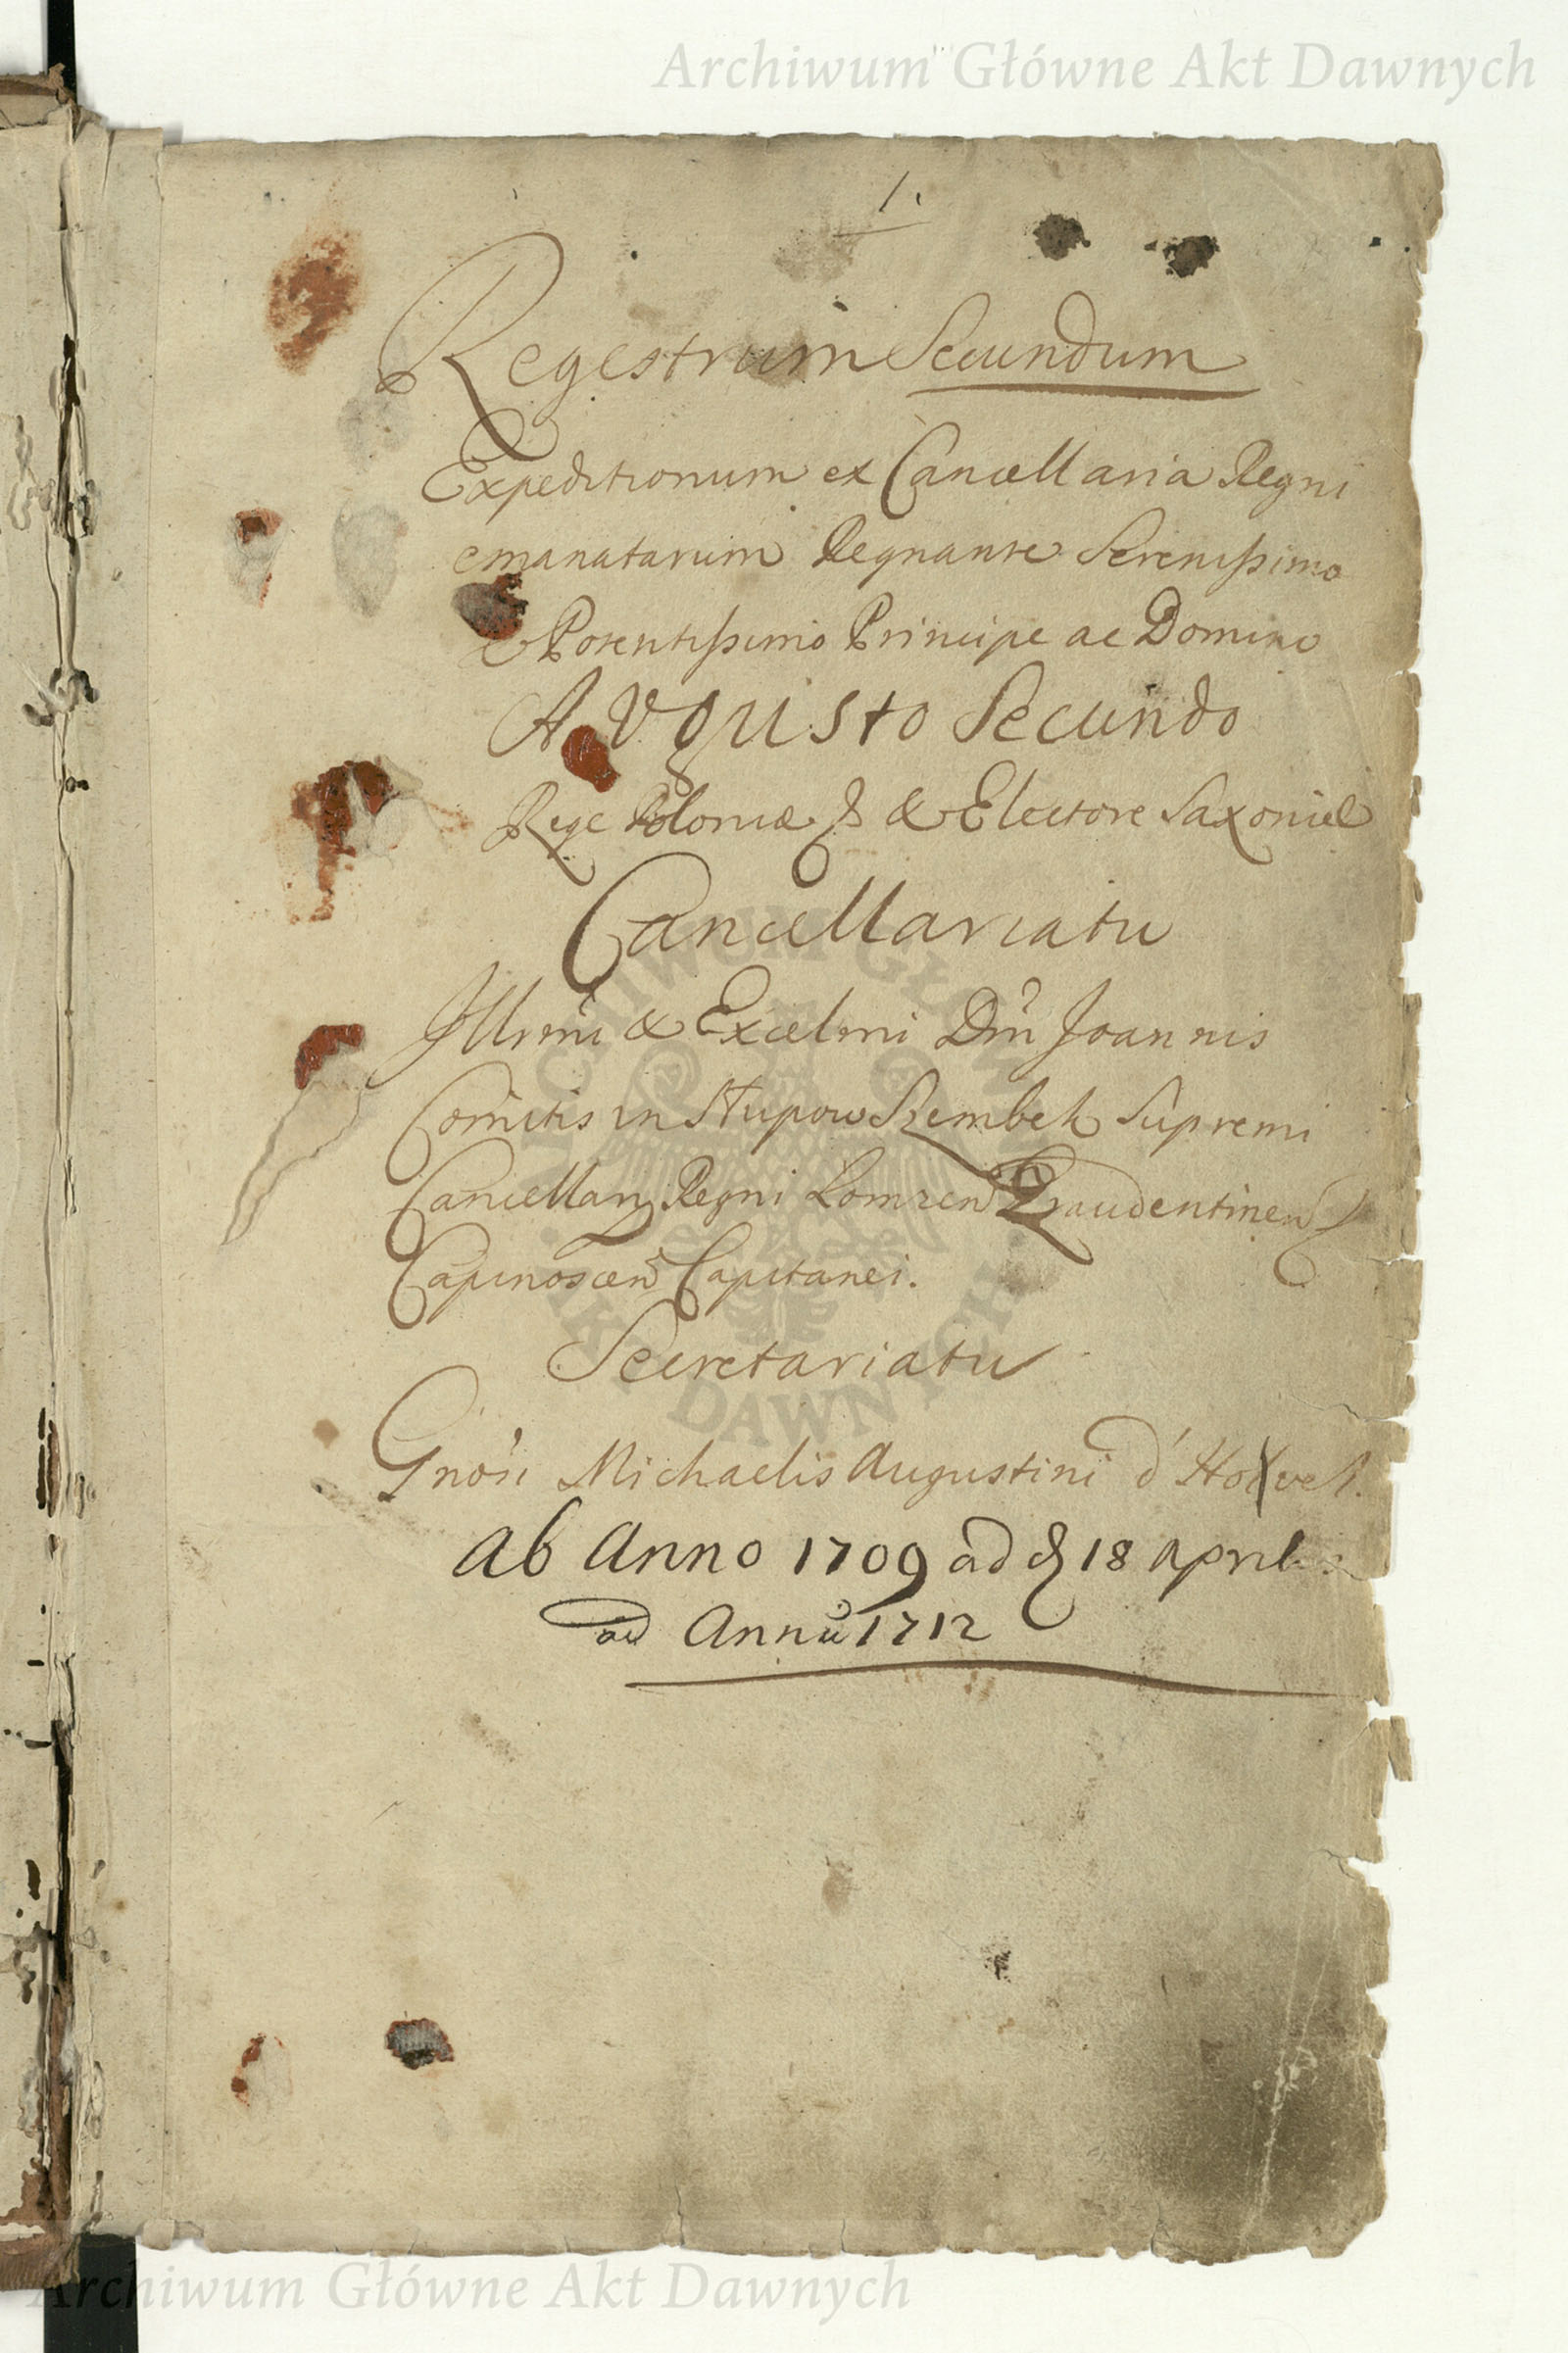 Archiwum Główne Akt Dawnych
1.
Regestrum Secundum
Expeditionum ex Cancellaria Regni
emanatarum Regnante Serenissimo
& Potentissimo Principe ac Domino
AVGUSto Secundo
Rege Poloniæ & Electore Saxoniæ
Cancellariatu
Illrmi & Excelmi Dni Joannis
Comitis in Słupow Szembek Supremi
Cancellarij Regni Lomzen Graudentinen
Capinoscen Capitanei.
Secretariatu
Gnosi Michaelis Augustini d'
Ab Anno 1709 ad 18 Aprilis
ad Annũ 1712
ARCHIWUM GŁÓWNE
AKT DAWNYCH
Archiwum Główne Akt Dawnych